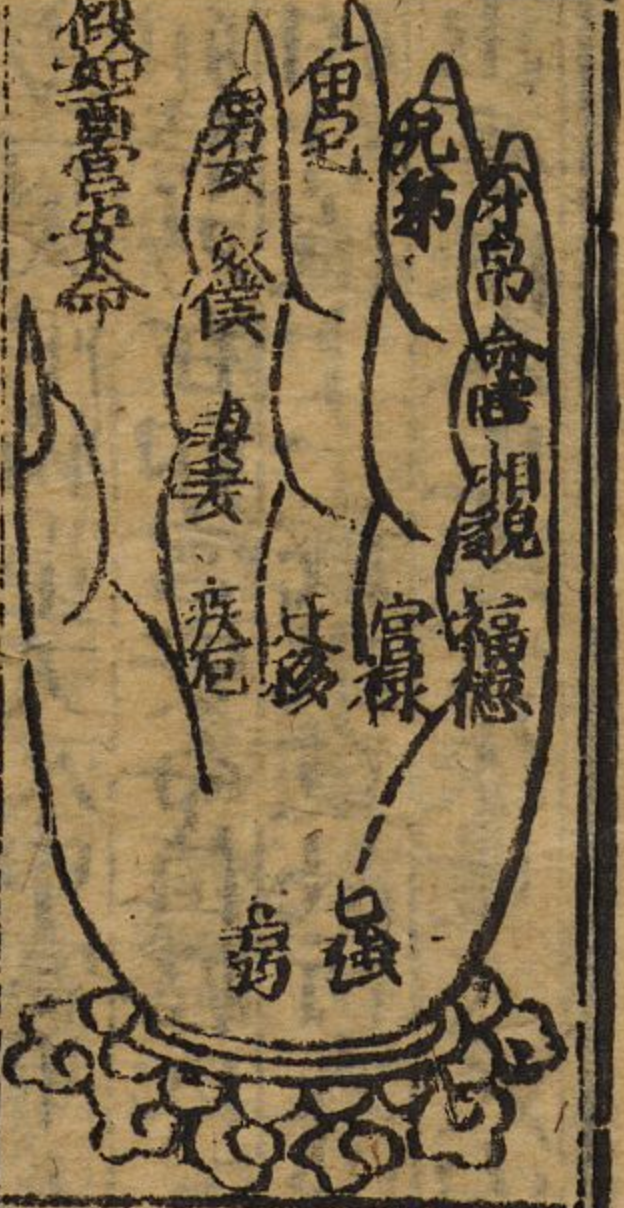 財帛
命宮
相貌
福德
兄弟
官禄
田宅
迁移
男女
奴僕
妻妾
疾厄
強
弱
假如酉宮安命